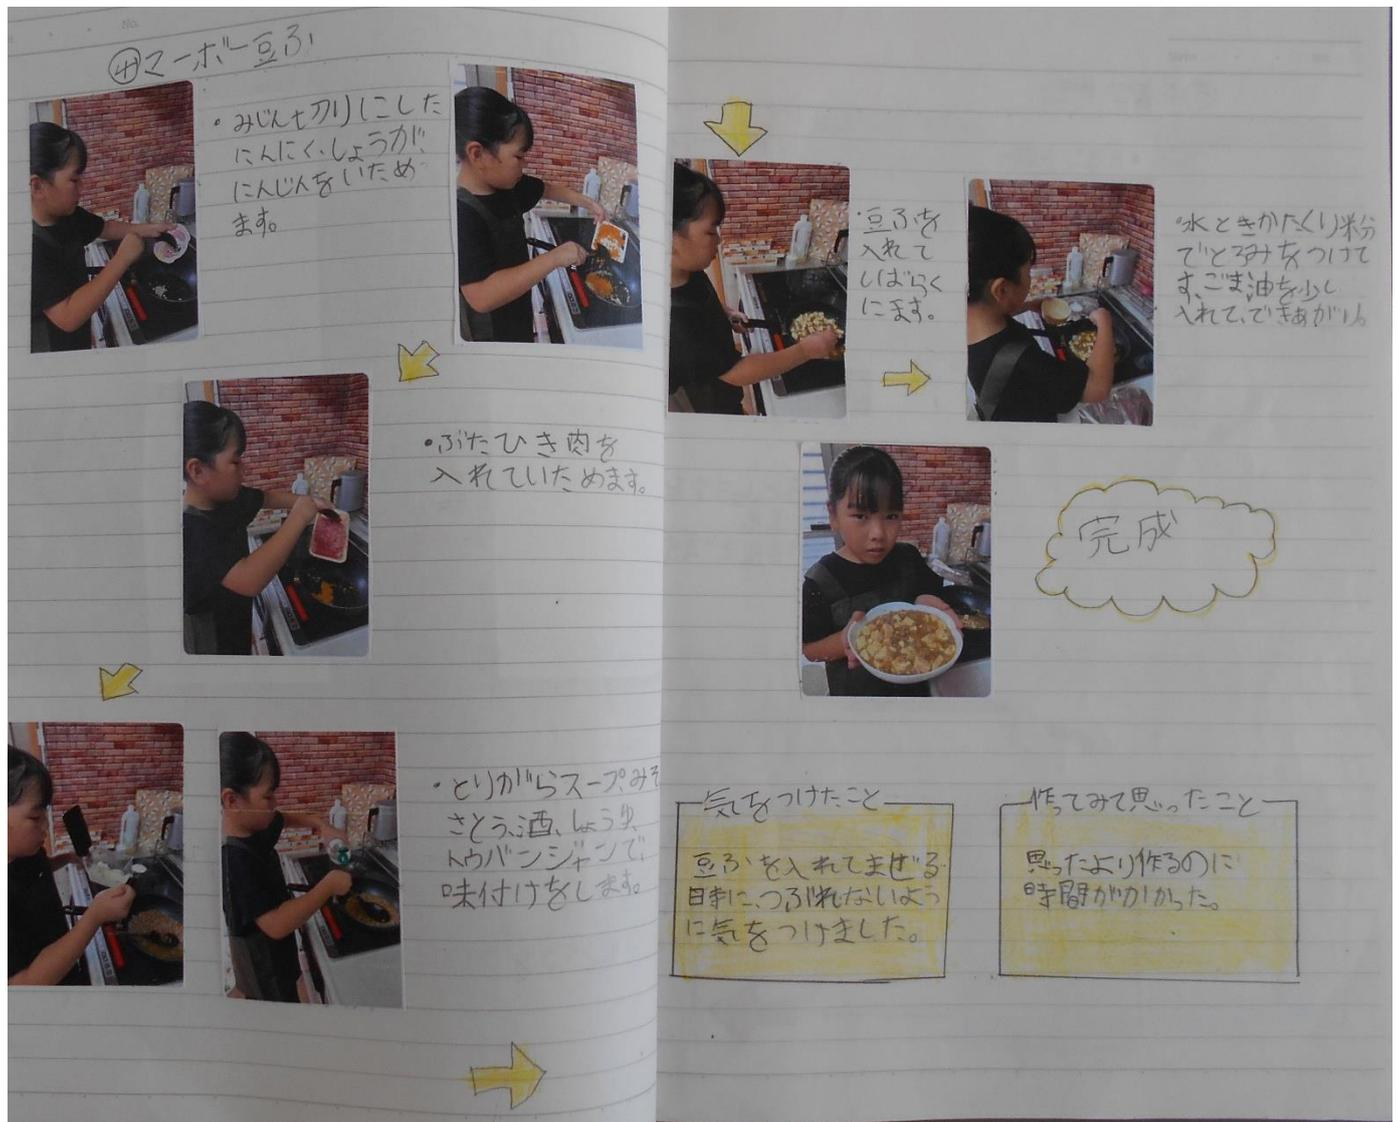 ④マーボー豆ふ
・みじん切りにした
にんにく、しょうが、
にんじんをいため
ます。
・ぶたひき肉を
入れていためます。
・とりがらスープ、みそ
さとう、酒、しょうゆ、
トウバンジャンで、
味付けをします。
・豆ふを
入れて
しばらく
にます。
・水ときかたくり粉
でとろみをつけて
す、ごま油を少し
入れて、できあがり。
完成
気をつけたこと
豆ふを入れてまぜる
時に、つぶれないよう
に気をつけました。
作ってみて思ったこと
思ったより作るのに
時間がかかった。